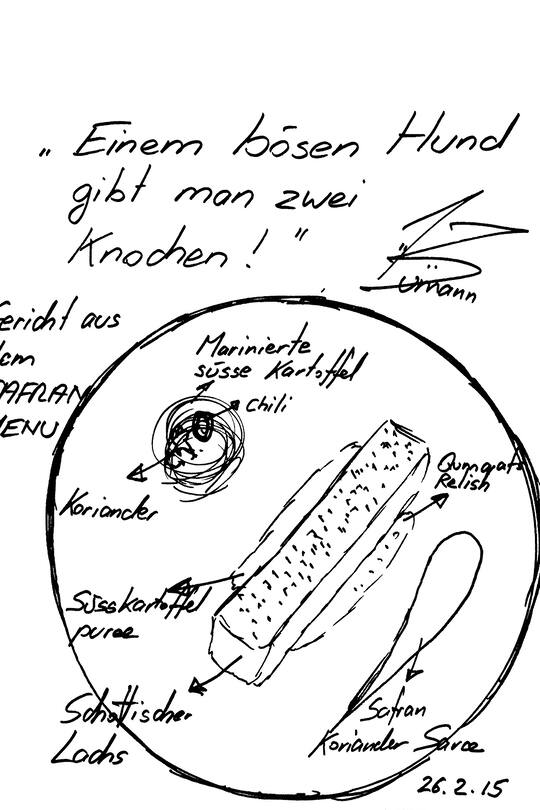 „Einem bösen Hund
gibt man zwei
Knochen!"
ericht aus
AFRAN
ENU
Marinierte
süsse Kartoffel
chili
Qumquats
Relish
Koriander
Süsskartoffel
puree
Schottischer
Lachs
Safran
Koriander Sauce
26.2.15